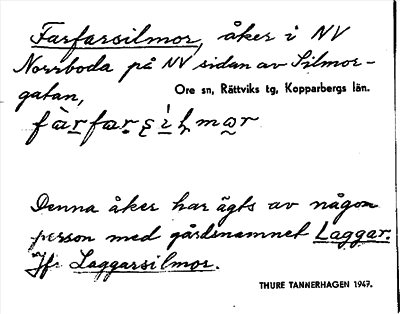 Farfarsilmor, åker i NV
Norrboda på NV sidan av Silmor-
gatan,
Ore sn, Rättviks tg, Kopparbergs län.
Denna åker har ägts av någon
person med gårdsnamnet Laggar.
Jfr Laggarsilmor.
THURE TANNERHAGEN 1947.